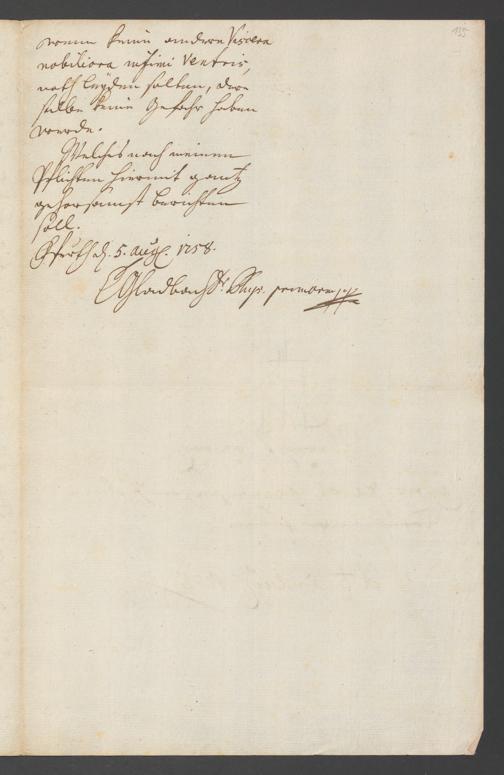 135
wenn keine andere Viscera
nobiliora infimi Ventris,
noth leyden solten, die-
selbe keine Gefahr haben
werde.
Welches nach meinen
Pflichten hiermit gantz
gehorsamst berichten
soll.
d. 5. Aug. 1758.
Gladbach Dr.